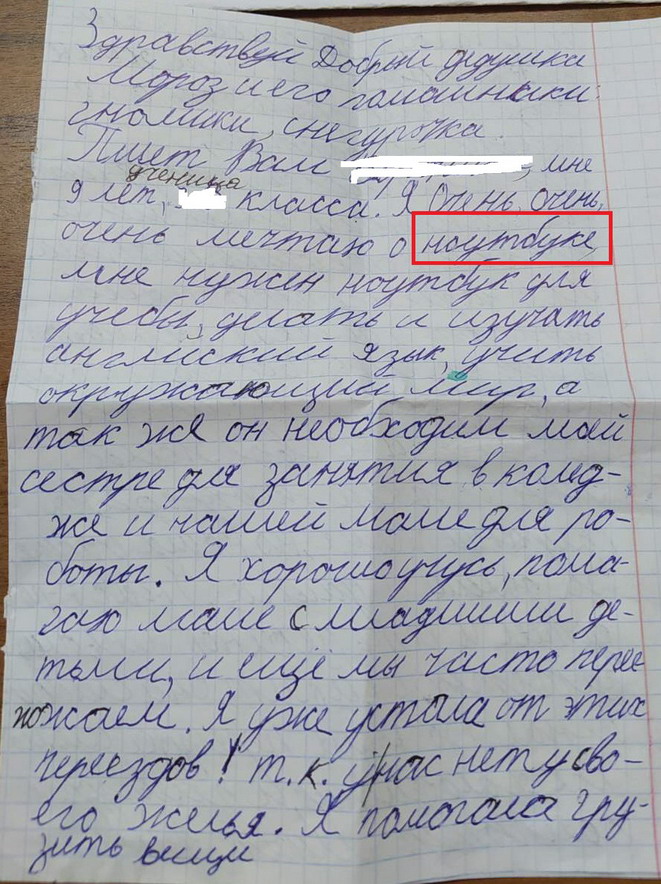 Здравствуй Добрый дедушка
Мороз и его помощники:
гномики, снегурочка.
Пишет Вам , мне
ученица
9 лет, класса. Я очень, очень,
очень мечтаю о ноутбуке,
мне нужен ноутбук для
учебы, делать и изучать
английский язык, учить
окружающий мир, а
так же он необходим моей
сестре для занятия в колед-
же и нашей маме для ро-
боты. Я хорошо учусь, пома-
гаю маме с младшими де-
тьми, и ещё мы частоперее
жаем. Я уже устала от этих
переездов! т.к. у нас нету сво-
его желья. Я помогала гру-
зить вещи